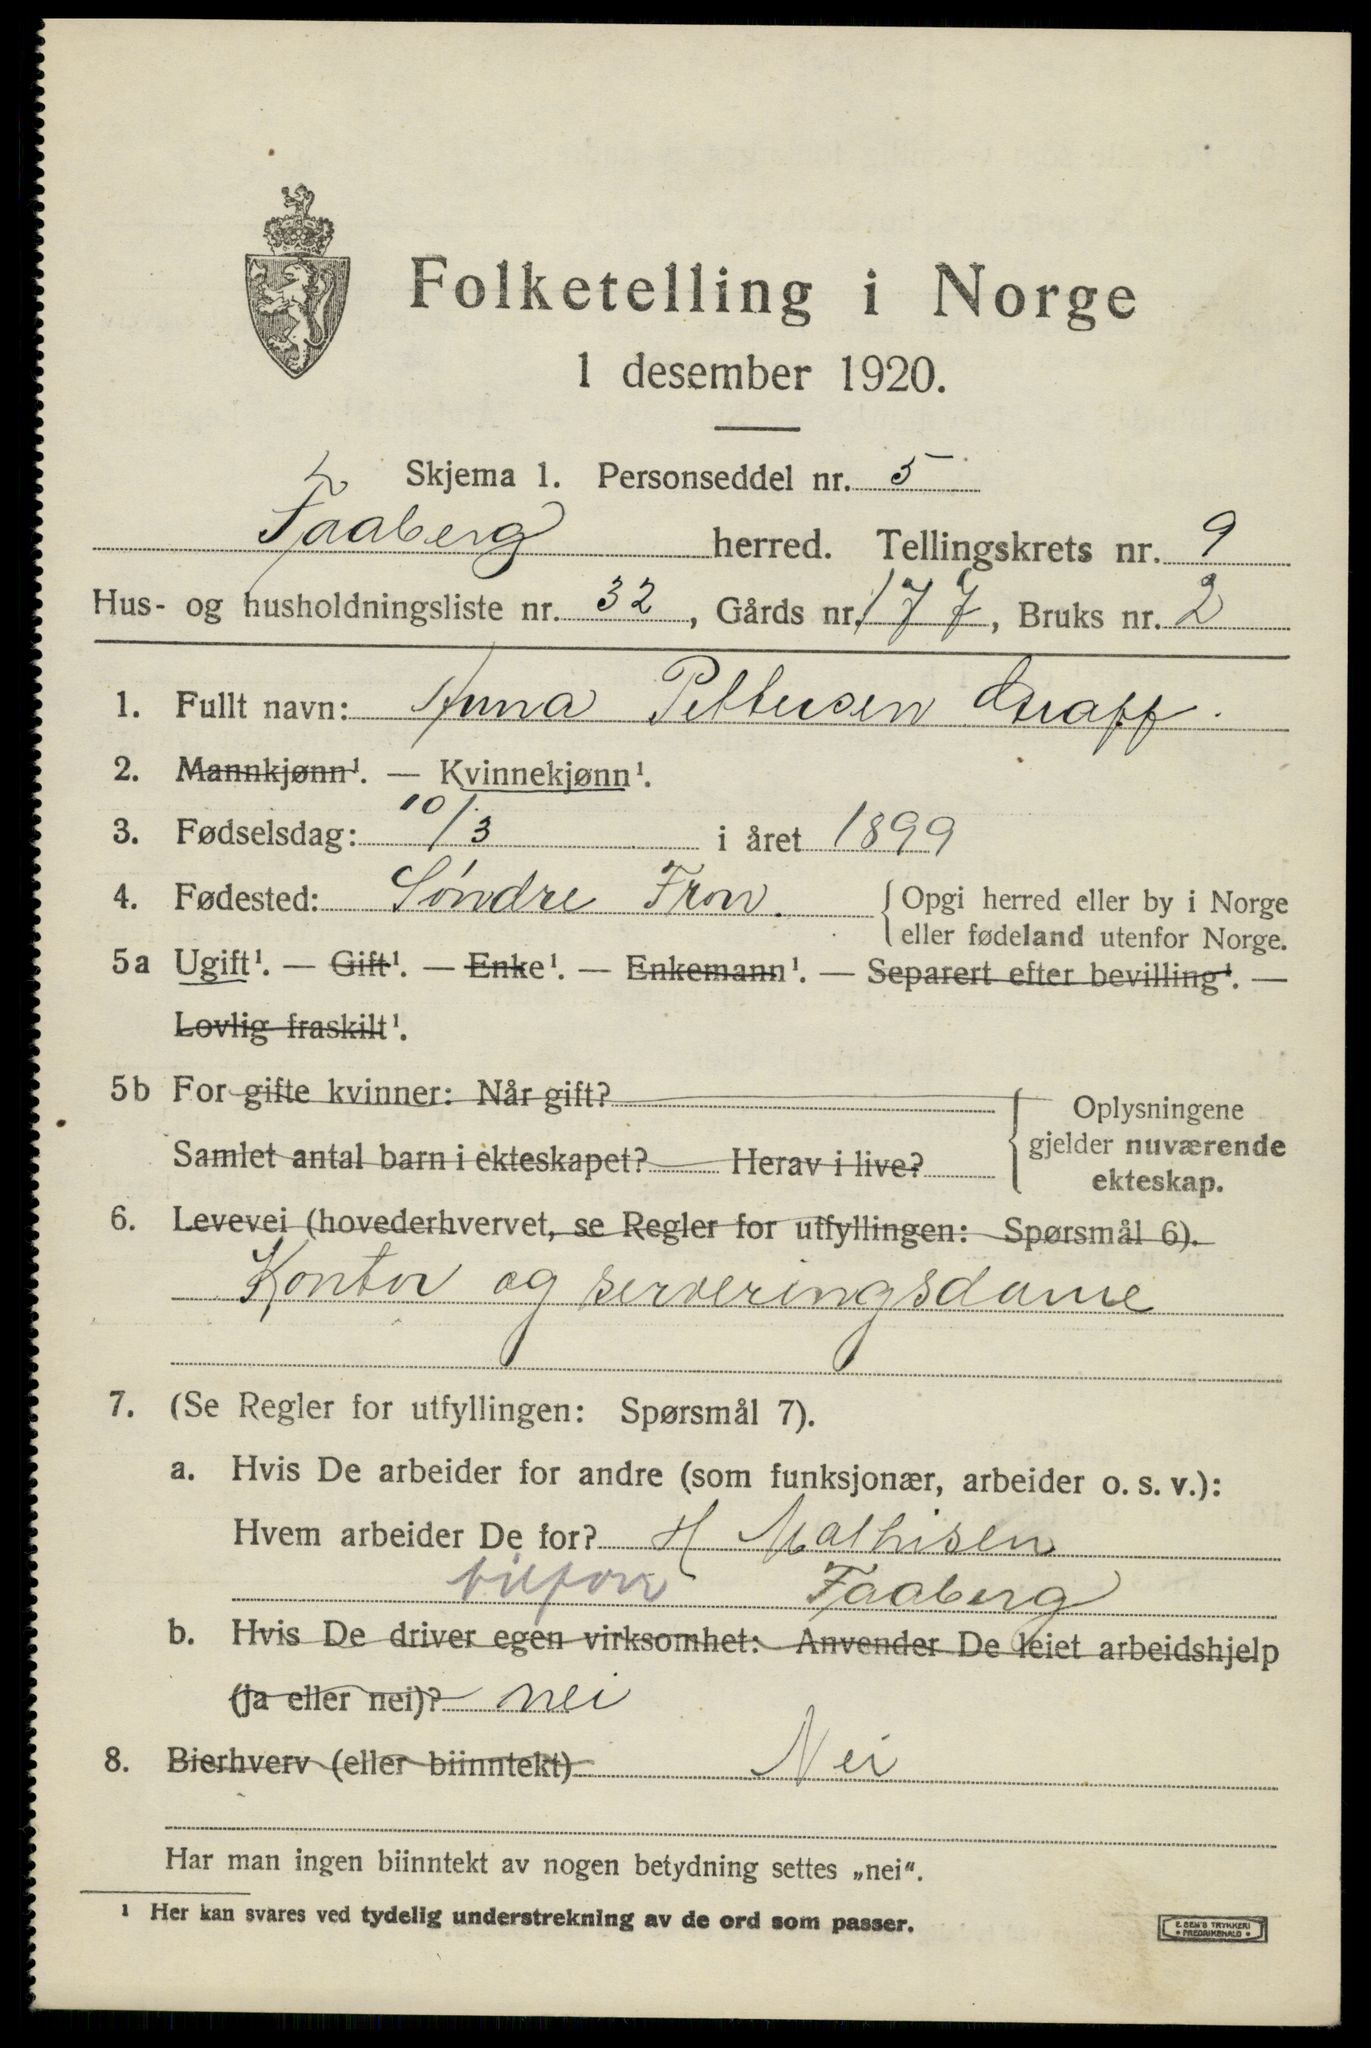 Folketelling i Norge
1 desember 1920.
Skjema 1. Personseddel nr. 5
Faaberg herred. Tellingskrets nr. 9
Hus- og husholdningsliste nr. 32, Gårds nr. 177, Bruks nr. 2
1. Fullt navn: Anna Pettersen Graff.
2. Mannkjønn¹. — Kvinnekjønn¹.
3. Fødselsdag: 10/3 i året 1899
4. Fødested: Søndre Fron. Opgi herred eller by i Norge
eller fødeland utenfor Norge.
5a Ugift¹. — Gift¹. — Enke¹. — Enkemann¹. — Separert efter bevilling¹. —
Lovlig fraskilt¹.
5b For gifte kvinner: Når gift?
Samlet antal barn i ekteskapet? Herav i live?
Oplysningene
gjelder nuværende
ekteskap.
6. Levevei (hovederhvervet, se Regler for utfyllingen: Spørsmål 6).
Kontor og serveringsdame
7. (Se Regler for utfyllingen: Spørsmål 7).
a. Hvis De arbeider for andre (som funksjonær, arbeider o. s. v.):
Hvem arbeider De for? H Mathisen
Faaberg
b. Hvis De driver egen virksomhet: Anvender De leiet arbeidshjelp
(ja eller nei)? nei
8. Bierhverv (eller biinntekt) Nei
Har man ingen biinntekt av nogen betydning settes „nei“.
¹ Her kan svares ved tydelig understrekning av de ord som passer.
E. SEM'S TRYKKERI
FREDRIKSHALD